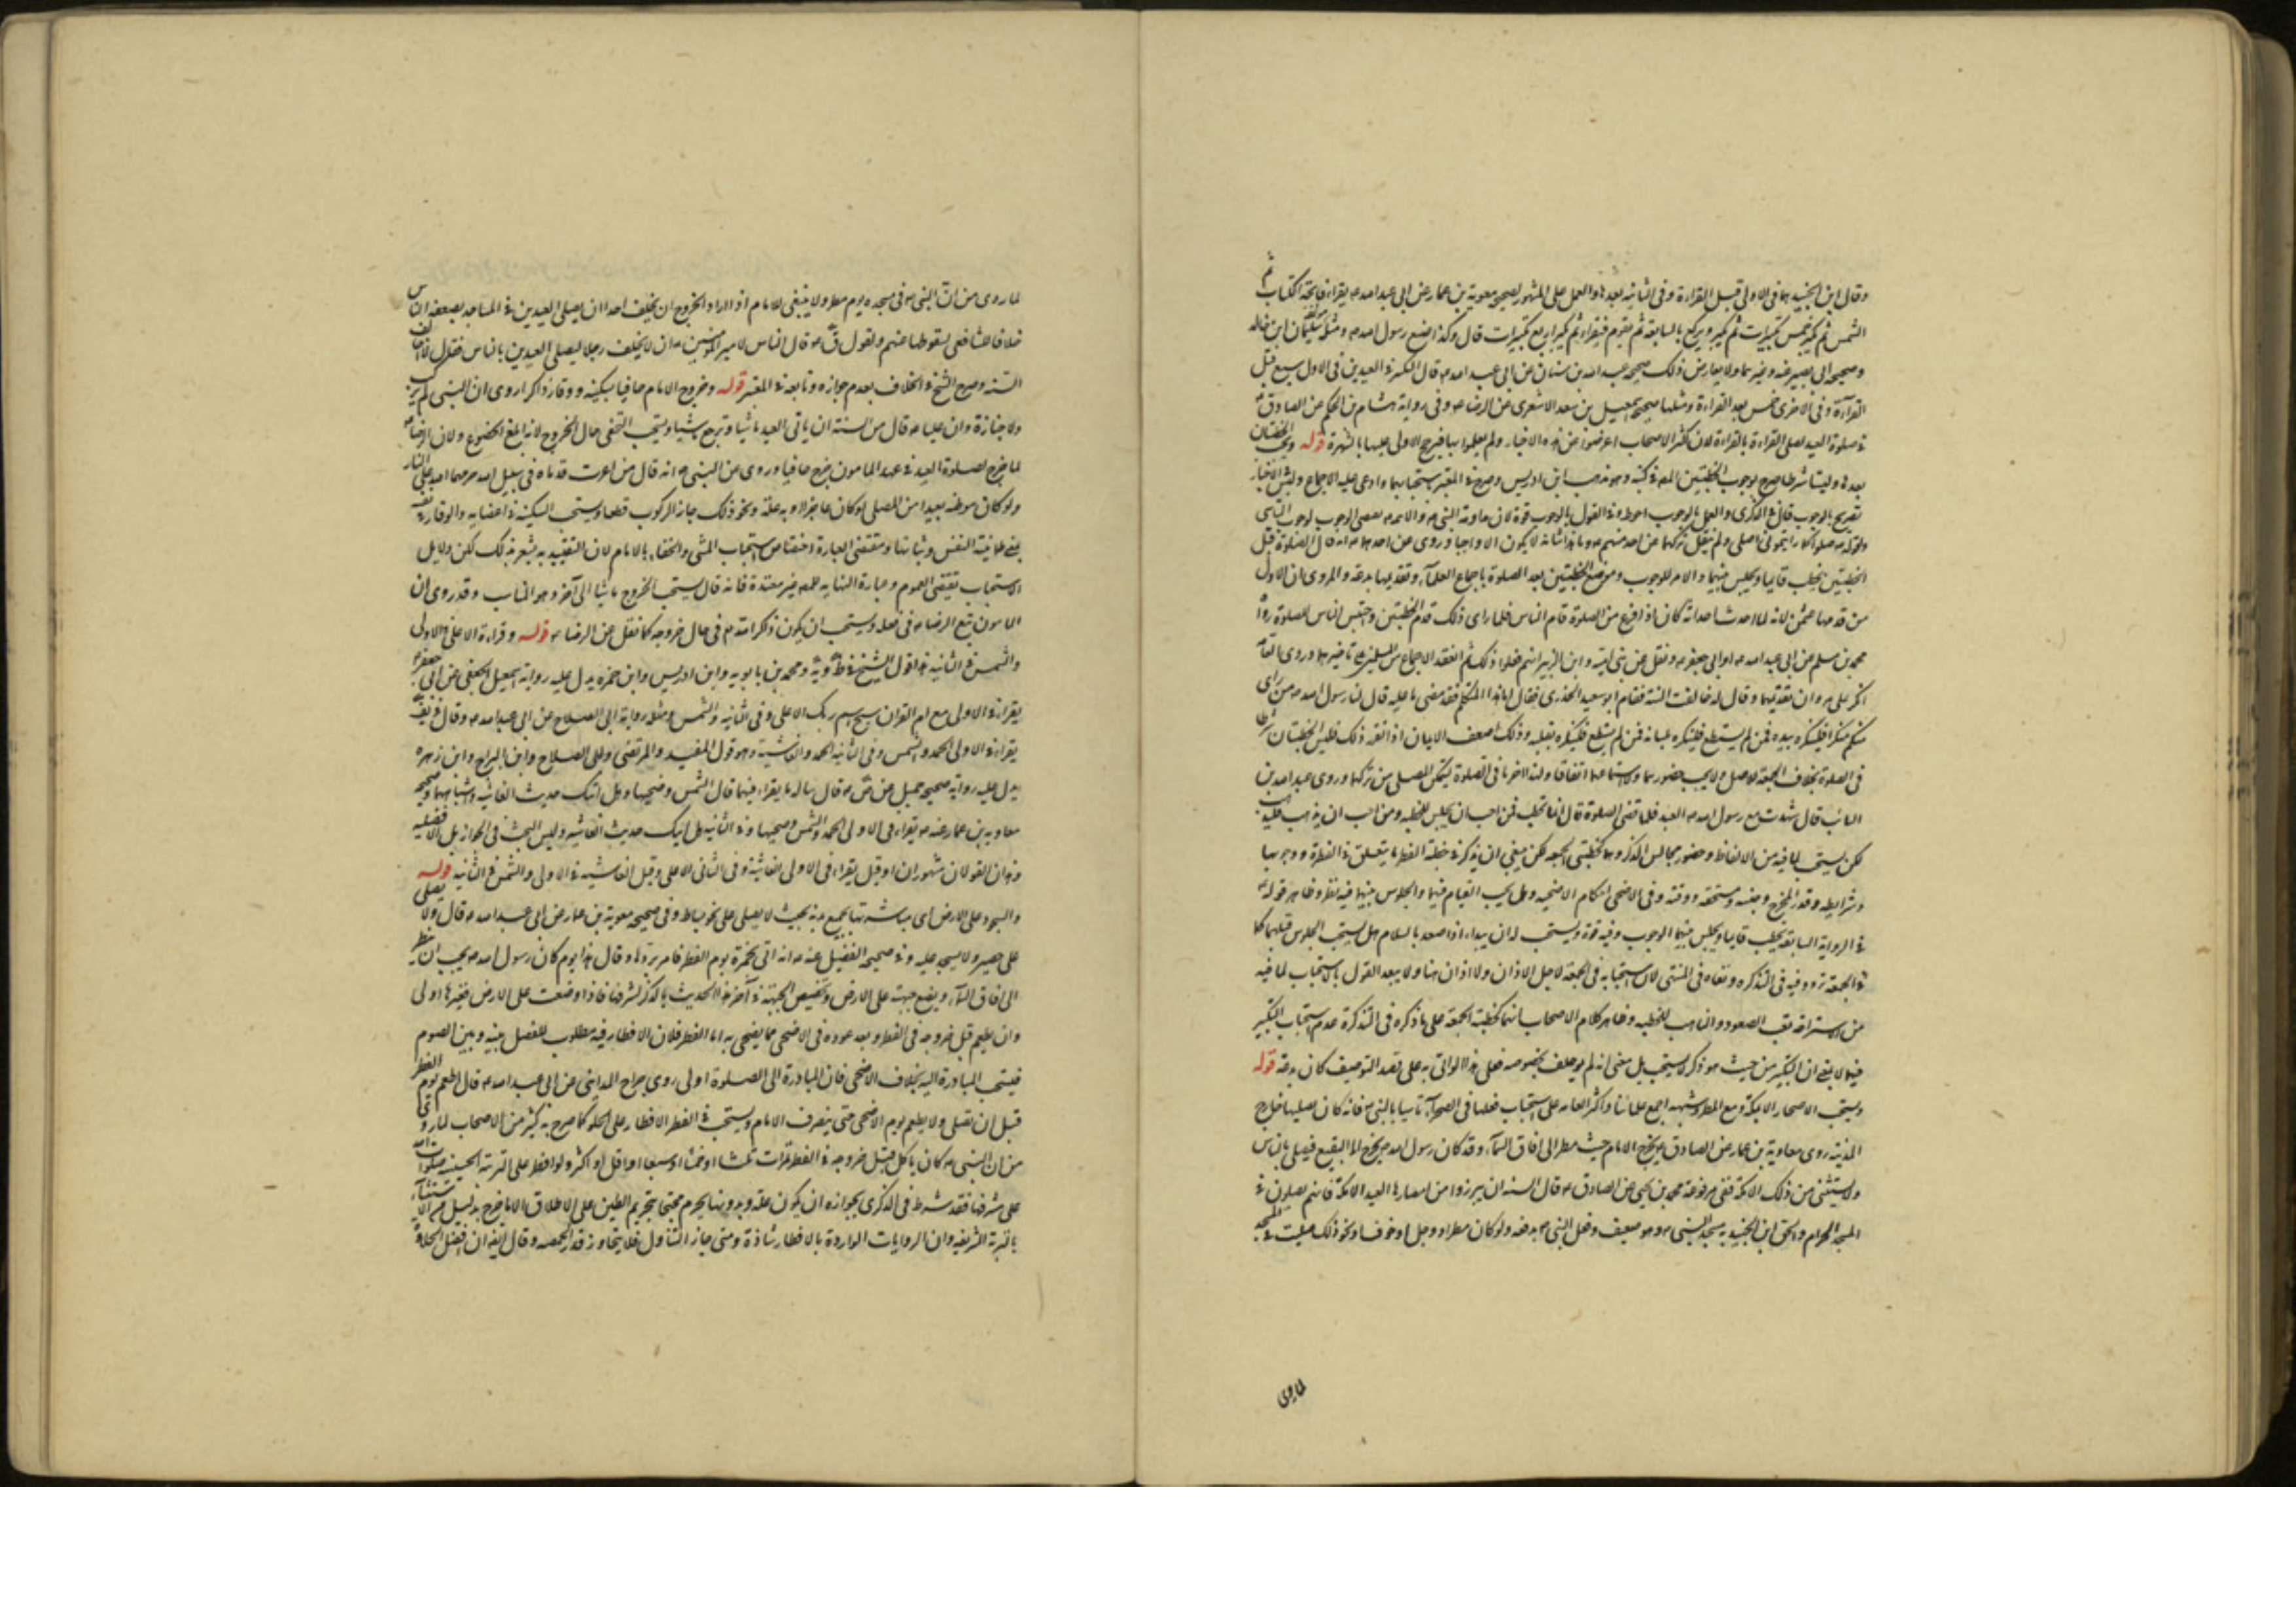 وقال ابن الجنيد هما في الاولى قبل القراءة وفي الثانية بعدها والعمل على المشهور لصحيحة معوية بن عمار عن ابي عبد الله ع يقراء فاتحة الكتاب ثم
الشمس ثم يكبر خمس تكبيرات ثم يكبر ويركع بالسابعة ثم يقوم فيقراء ثم يكبر اربع تكبيرات قال وكذا صنع رسول الله ص ومثله سليمان ابن خالد
وصحيحه ابي بصير عنه وغيرهما ولا يعارض ذلك صحيحه عبد الله بن سنان عن ابي عبد الله ع قال التكبير في العيدين في الاول سبع قبل
القرآءة وفي الاخرى خمس بعد القراءة ومثلها صحيحه اسمعيل بن سعد الاشعري عن الرضا ع وفي رواية هشام بن الحكم عن الصادق ع
في صلوة العيد تصل القراءة بالقراءة لان اكثر الاصحاب اعرضوا عن هذه الاخبار ولم يعملوا بها فيرجح الاولى عليها بالشهرة قوله ويجب الخطبتان
بعدها وليستا شرطا صرح بوجوب الخطبتين المص في كتبه وهو مذهب ابن ادريس وصرح في المعتبر باستحبابهما وادعى عليه الاجماع وليس في الاخبار
تصريح بالوجوب قال في الذكرى والعمل بالوجوب احوط وفي القول بالوجوب قوة لان مداومة النبي ص والائمه ع يعطي الوجوب لوجوب التاسي
ولقوله ص صلوا كما رايتموني اصلي ولم ينقل تركها عن احد منهم ع وما هذا شانه لا يكون الا واجبا وروى عن احدهما ع انه قال الصلوة قبل
الخطبتين يخطب قايما ويجلس بينهما والامر للوجوب وموضع الخطبتين بعد الصلوة باجماع العلمآء وتقديمها بدعة والمروى ان الاول
من قدمها عثمن لانه لما احدث احداثه كان اذا فرغ من الصلوة قام الناس فلما راى ذلك قدم الخطبتين واحتبس الناس للصلوة رواه
محمد بن مسلم عن ابي عبد الله ع او ابي جعفر ع ونقل عن بني امية وابن الزبير انهم فعلوا ذلك ثم انعقد الاجماع من المسلمين على تاخيرها وروى العامة
انكر على مروان تقديمها وقال له خالفت السنة فقام ابو سعيد الخدري فقال اما هذا المتكلم فقد قضى ما عليه قال لنا رسول الله ص من راى
منكم منكرا فلينكره بيده فمن لم يستطع فلينكره بلسانه فمن لم يستطع فلينكره بقلبه وذلك اضعف الايمان اذا تقرر ذلك فليس الخطبتان شرطا
في الصلوة بخلاف الجمعة للاصل ولا يجب حضورهما ولا استماعهما اتفاقا ولذا اخرتا في الصلوة ليتمكن المصلي من تركها وروى عبد الله بن
السائب قال شهدت مع رسول الله ص العيد فلما قضى الصلوة قال انا نخطب فمن احب ان يجلس للخطبه ومن احب ان يذهب فليذهب
لكن يستحب لما فيه من الاتعاظ وحضور مجالس الذكر وهما كخطبتي الجمعه لكن ينبغي ان يذكر في خطبة الفطر ما يتعلق في الفطرة ووجوبها
وشرايطها وقدر المخرج وجنسه ومستحقه ووقته وفي الاضحى احكام الاضحيه وهل يجب القيام فيهما والجلوس بينهما فيه نظر وظاهر قوله ع
في الرواية السابقة يخطب قايما ويجلس بينهما الوجوب وفيه قوة ويستحب له ان يبداء اذا صعد بالسلام وهل يستحب الجلوس قبلهما كما
في الجمعة تردد فيه في التذكره ونفاه في المنتهى لان استحبابه في الجمعة لاجل الاذان ولا اذان هنا ولا يبعد القول بالاستحباب لما فيه
من الاستراحة من تعب الصعود والتاهب للخطبه وظاهر كلام الاصحاب انهما كخطبة الجمعة على ما ذكره في التذكرة عدم استحباب التكبير
فيهما لا بمعنى ان التكبير من حيث هو ذكر لا يستحب بل بمعنى انه لم يوظف بخصوصه فعلى هذا لو اتى به على قصد التوظيف كان بدعة قوله
ويستحب الاصحار الا بمكة ومع المطر وشبهه اجمع علمائنا واكثر العامه على استحباب فعلها في الصحراء تاسيا بالنبي ص فانه كان يصليها خارج
المدينة روى معاوية بن عمار عن الصادق ع يخرج الامام حيث ينظر الى افاق السمآء وقد كان رسول الله ص يخرج الى البقيع فيصلي بالناس
ولا يستثنى من ذلك الا مكة ففي مرفوعة محمد بن يحيى عن الصادق ع قال السنه ان يبرزوا من امصارها العيد الا مكة فانهم يصلون في
المسجد الحرام والحق ابن الجنيد به مسجد النبي ص وهو ضعيف وفعل النبي ص يدفعه ولو كان مطر او وحل او خوف او نحو ذلك صليت في المسجد
لما روى
لما روى من ان النبي ص في مسجده يوم مطر ولا ينبغي للامام اذا اراد الخروج ان يخلف احدا ان يصلي العيدين في المساجد بضعفة الناس
خلافا للشافعي لسقوطها عنهم ولقول ق ع قال الناس لامير المؤمنين ع ان لا يخلف رجلا ليصلي العيدين بالناس فقال لا اخالف
السنة وصرح الشيخ في الخلاف بعدم جوازه وتابعه في المعتبر قوله وخروج الامام حافيا بسكينه ووقار ذاكرا روى ان النبي لم يركب
ولا جنازة وان عليا ع قال من السنة ان ياتي العيد ماشيا ويرجع ماشيا ويستحب التحفي حال الخروج لانه ابلغ الخضوع ولان الرضا ع
لما خرج لصلوة العيد في عهد المامون خرج حافيا وروى عن النبي ص انه قال من اغبرت قدماه في سبيل الله حرمهما الله على النار
ولو كان موطنه بعيدا من المصلى او كان عاجزا او به علة ونحو ذلك جاز الركوب قطعا ويستحب السكينة في اعضايه والوقار في نفسه
يعني طمانينة النفس وثباتها ومقتضى العبارة اختصاص استحباب المشي والحفاء بالامام لان التقييد به يشعر بذلك لكن دلايل
الاستحباب تقتضي العموم وعبارة النهايه للمص غير مقيدة فانه قال يستحب الخروج ماشيا الى آخره وهو المناسب وقد روى ان
المامون تبع الرضا ع في فعله ويستحب ان يكون ذاكرا لله تع في حال خروجه كما نقل عن الرضا ع قوله وقراءة الاعلى في الاولى
والشمس في الثانية هذا قول الشيخ في ط وية ومحمد بن بابويه وابن ادريس وابن حمزه يدل عليه رواية اسمعيل الجعفي عن ابي جعفر ع
يقراء في الاولى مع ام القران سبح اسم ربك الاعلى وفي الثانيه والشمس ومثله رواية ابي الصلاح عن ابي عبد الله ع وقال في
يقراء في الاولى الحمد والشمس وفي الثانيه الحمد والغاشية وهو قول المفيد والمرتضى وابي الصلاح وابن البراج وابن زهره
يدل عليه رواية صحيحه جميل عن ص ع قال ساله ما يقراء فيهما قال الشمس وضحيها وهل اتيك حديث الغاشيه واشباههما وصحيحه
معاويه بن عمار عنه ع تقراء في الاولى الحمد والشمس وضحيها وفي الثانيه هل اتيك حديث الغاشيه وليس البحث في الجواز بل الافضليه
وهذان القولان مشهوران وقيل يقراء في الاولى الغاشية وفي الثاني الاعلى وقيل الغاشيه في الاولى والشمس في الثانيه قوله
والسجود على الارض اي مباشرتها بجميع بدنه بحيث لا يصلي على نحو بساط وفي صحيحه معوية بن عمار عن ابي عبد الله ع قال ولا يصلى
على حصير ولا يسجد عليه وفي صحيحه الفضيل عنه ع انه اتى بخمرة يوم الفطر فامر بردها وقال هذا يوم كان رسول الله ص يحب ان ينظر
الى افاق السمآء ويضع جبهته على الارض وتخصيص الجبهة في آخر هذا الحديث بالذكر لشرفها فاذا وضعت على الارض فغيرها اولى
وان يطعم قبل خروجه في الفطر وبعد عوده في الاضحى مما يضحي به اما الفطر فلان الافطار فيه مطلوب للفصل بينه وبين الصوم
فيستحب المبادرة اليه بخلاف الاضحى فان المبادرة الى الصلوة اولى روى جراح المدايني عن ابي عبد الله ع قال اطعم يوم الفطر
قبل ان تصلي ولا يطعم يوم الاضحى حتى ينصرف الامام ويستحب في الفطر الافطار على الحلو كما صرح به كثير من الاصحاب لما روى
من ان النبي ص كان ياكل قبل خروجه في الفطر تمرات ثلثا او خمسا او سبعا او اقل او اكثر ولو افطر على التربة الحسينيه صلوات الله
على مشرفها فقد شرط في الذكرى بجوازه ان يكون علة وبدونها يحرم محتجا بتحريم الطين على الاطلاق الا ما خرج بدليل من الاستثناء
بالتربة الشريفه وان الروايات الواردة بالافطار شاذة ومتى جاز التناول فلا يتجاوز قدر الحمصه وقال ايضا ان افضل الحلاوة